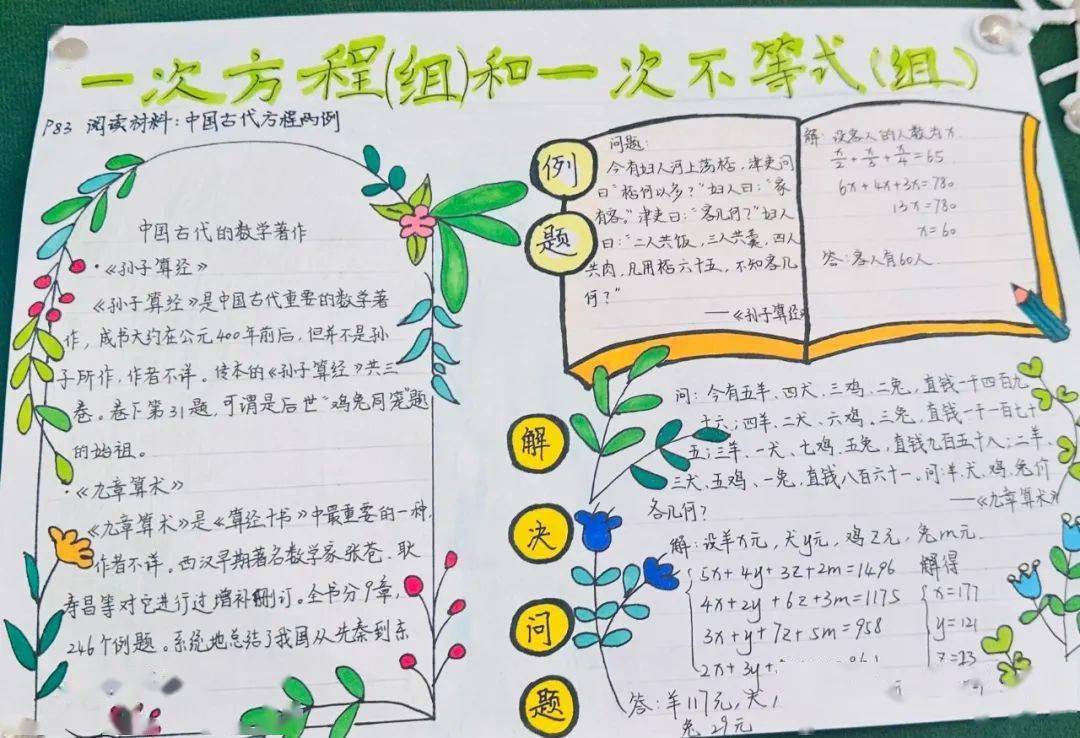 一次方程(组)和一次不等式(组)
P83 阅读材料：中国古代方程两例
中国古代的数学著作
·《孙子算经》
《孙子算经》是中国古代重要的数学著
作，成书大约在公元400年前后，但并不是孙
子所作，作者不详。传本的《孙子算经》共三
卷。卷下第31题，可谓是后世"鸡兔同笼"题
的始祖。
·《九章算术》
《九章算术》是《算经十书》中最重要的一种，
作者不详。西汉早期著名数学家张苍、耿
寿昌等对它进行过增补删订。全书分9章，
246个例题。系统地总结了我国从先秦到东
例
题
问题：
今有妇人河上荡桮，津吏问
曰"桮何以多？"妇人曰："家
有客。"津吏曰："客几何？"妇人
曰："二人共饭，三人共羹，四人
共肉，凡用桮六十五，不知客几
何？"
——《孙子算经》
解：设客人的人数为x.
x/2+x/3+x/4=65
6x+4x+3x=780
13x=780
x=60
答：客人有60人.
解
决
问
题
问：今有五羊、四犬、三鸡、二兔，直钱一千四百九
十六；四羊、二犬、六鸡、三兔，直钱一千一百七十
五；三羊、一犬、七鸡、五兔，直钱九百五十八；二羊、
三犬、五鸡、一兔，直钱八百六十一。问：羊、犬、鸡、兔价
各几何？
——《九章算术》
解：设羊x元，犬y元，鸡z元，兔m元.
5x+4y+3z+2m=1496
4x+2y+6z+3m=1175
3x+y+7z+5m=958
2x+3y+
解得
x=177
y=121
z=23
答：羊117元，犬
兔29元